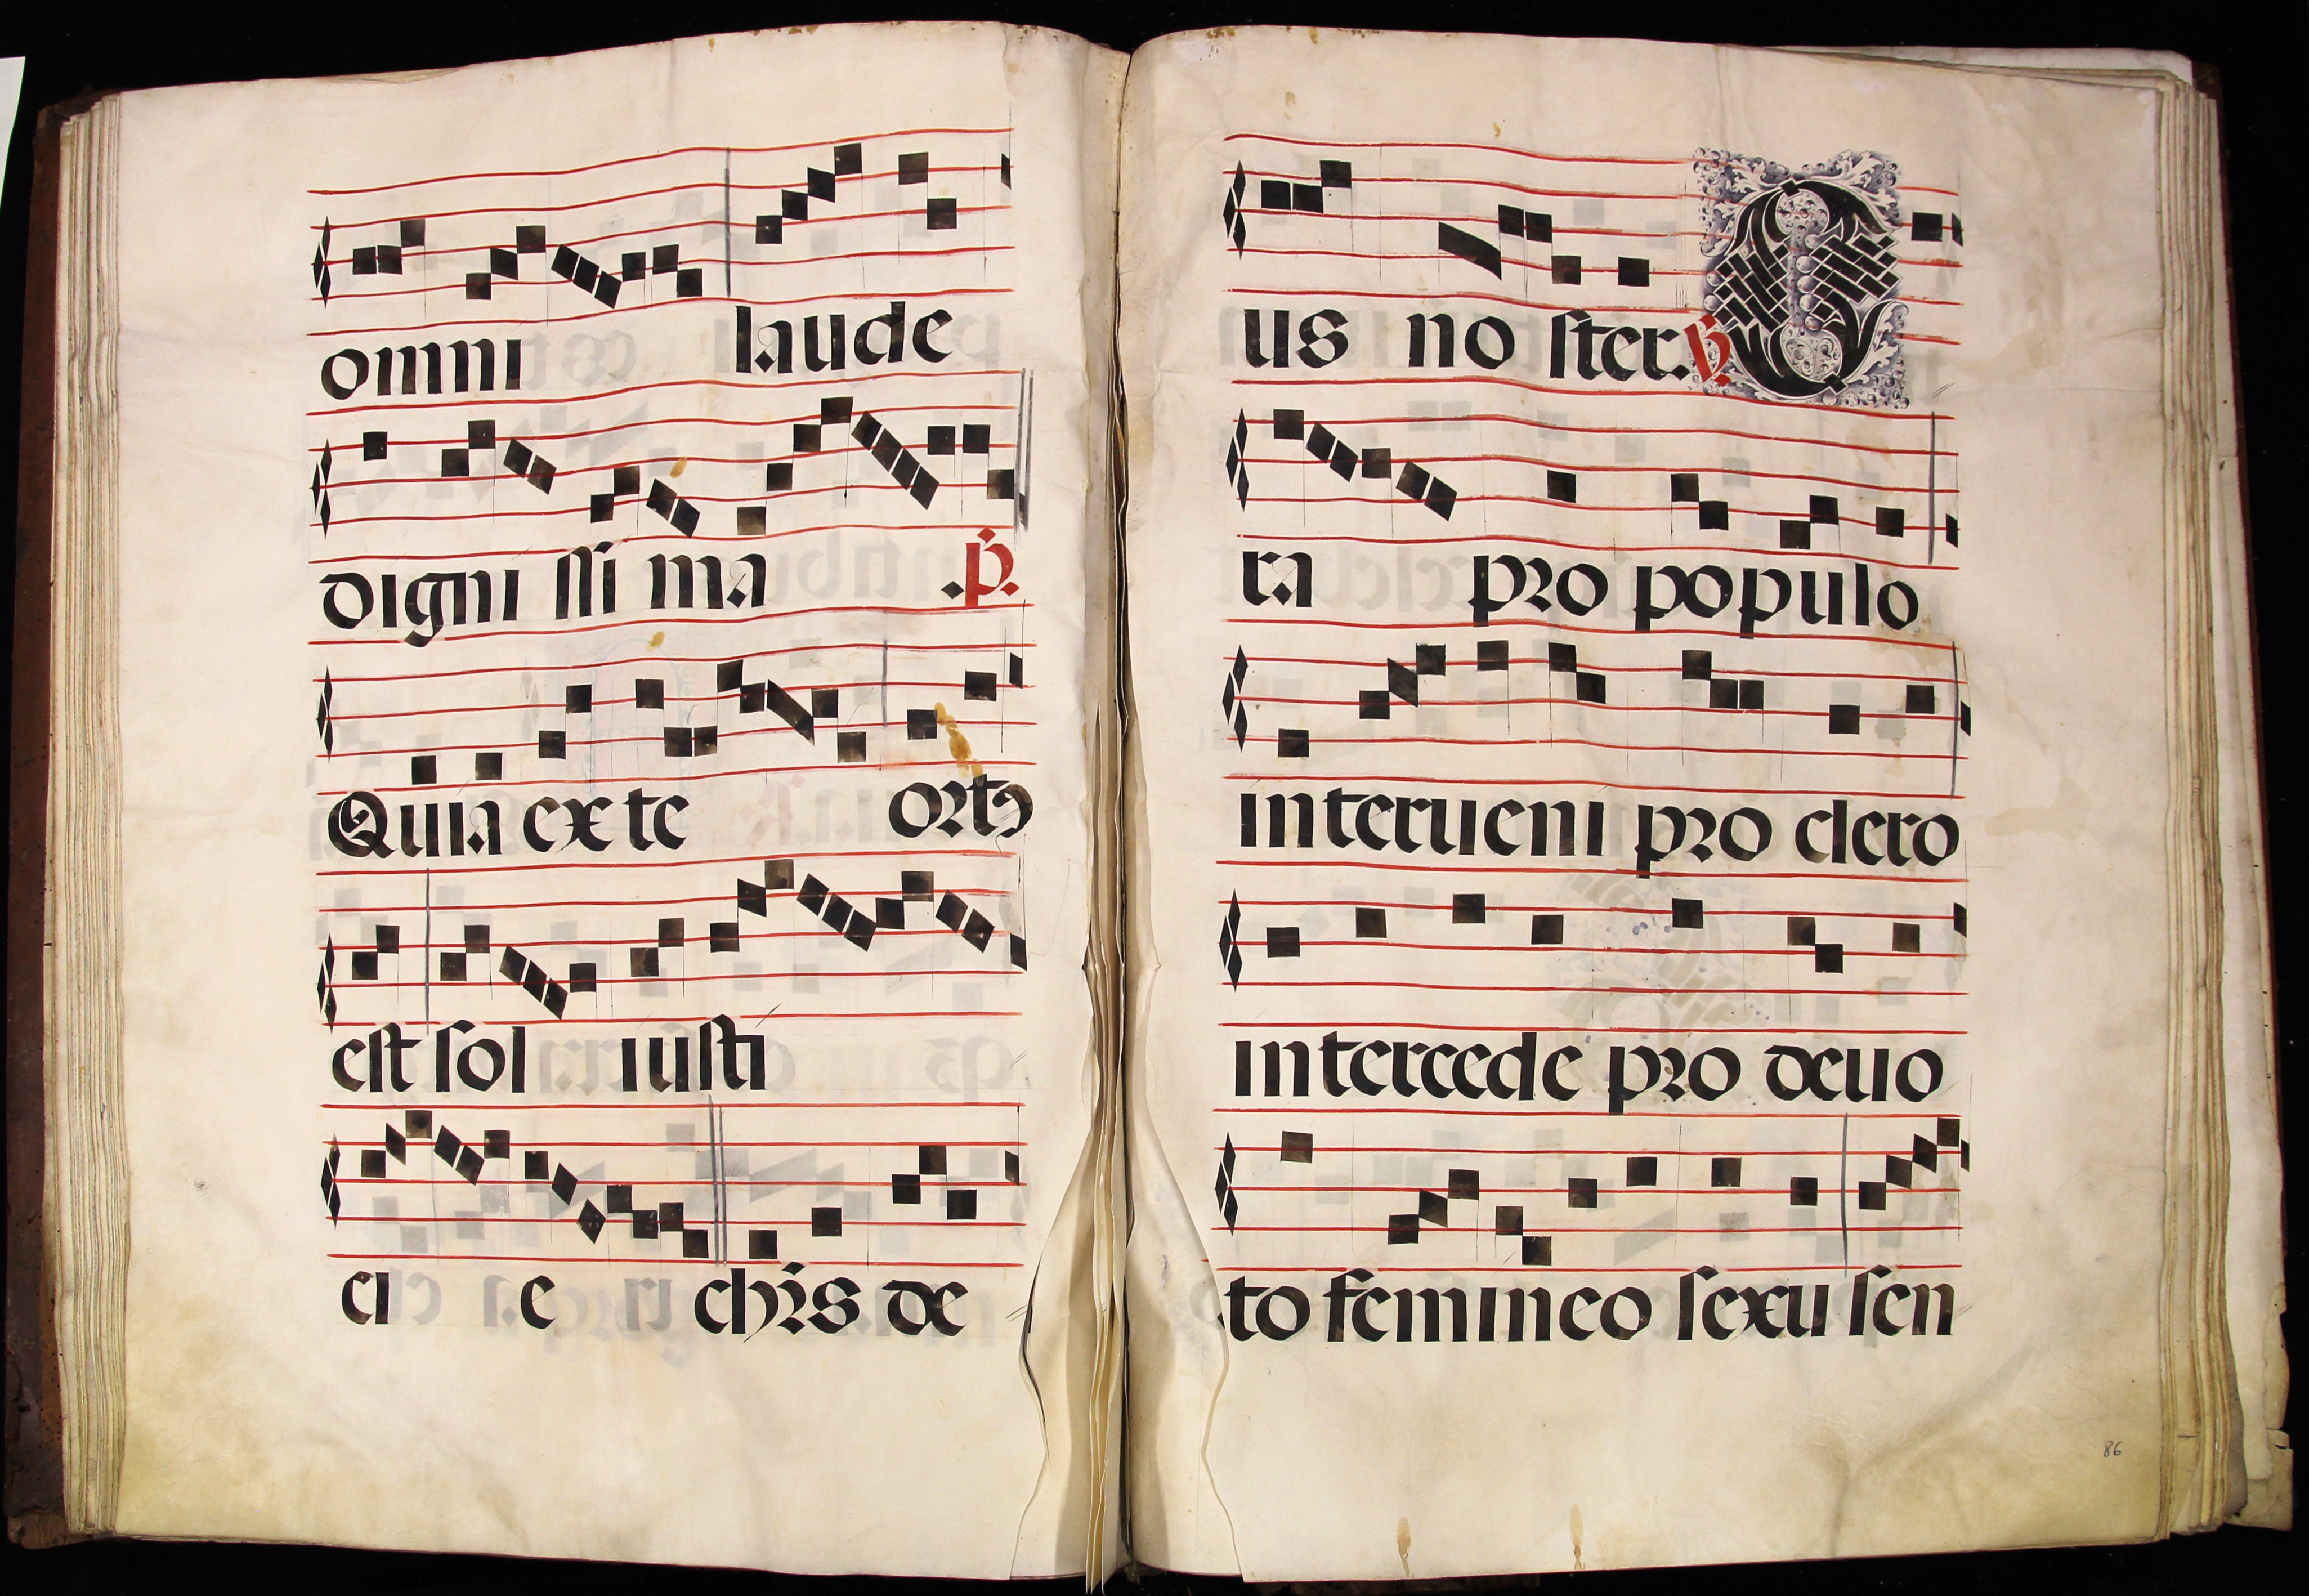 omni laude
digni ssi ma .p.
Quia ex te ortꝰ
est sol iusti
ci e chr̄s de
us no ster. ℣. O
ra pro populo
interueni pro clero
intercede pro deuo
to femineo sexu sen
86